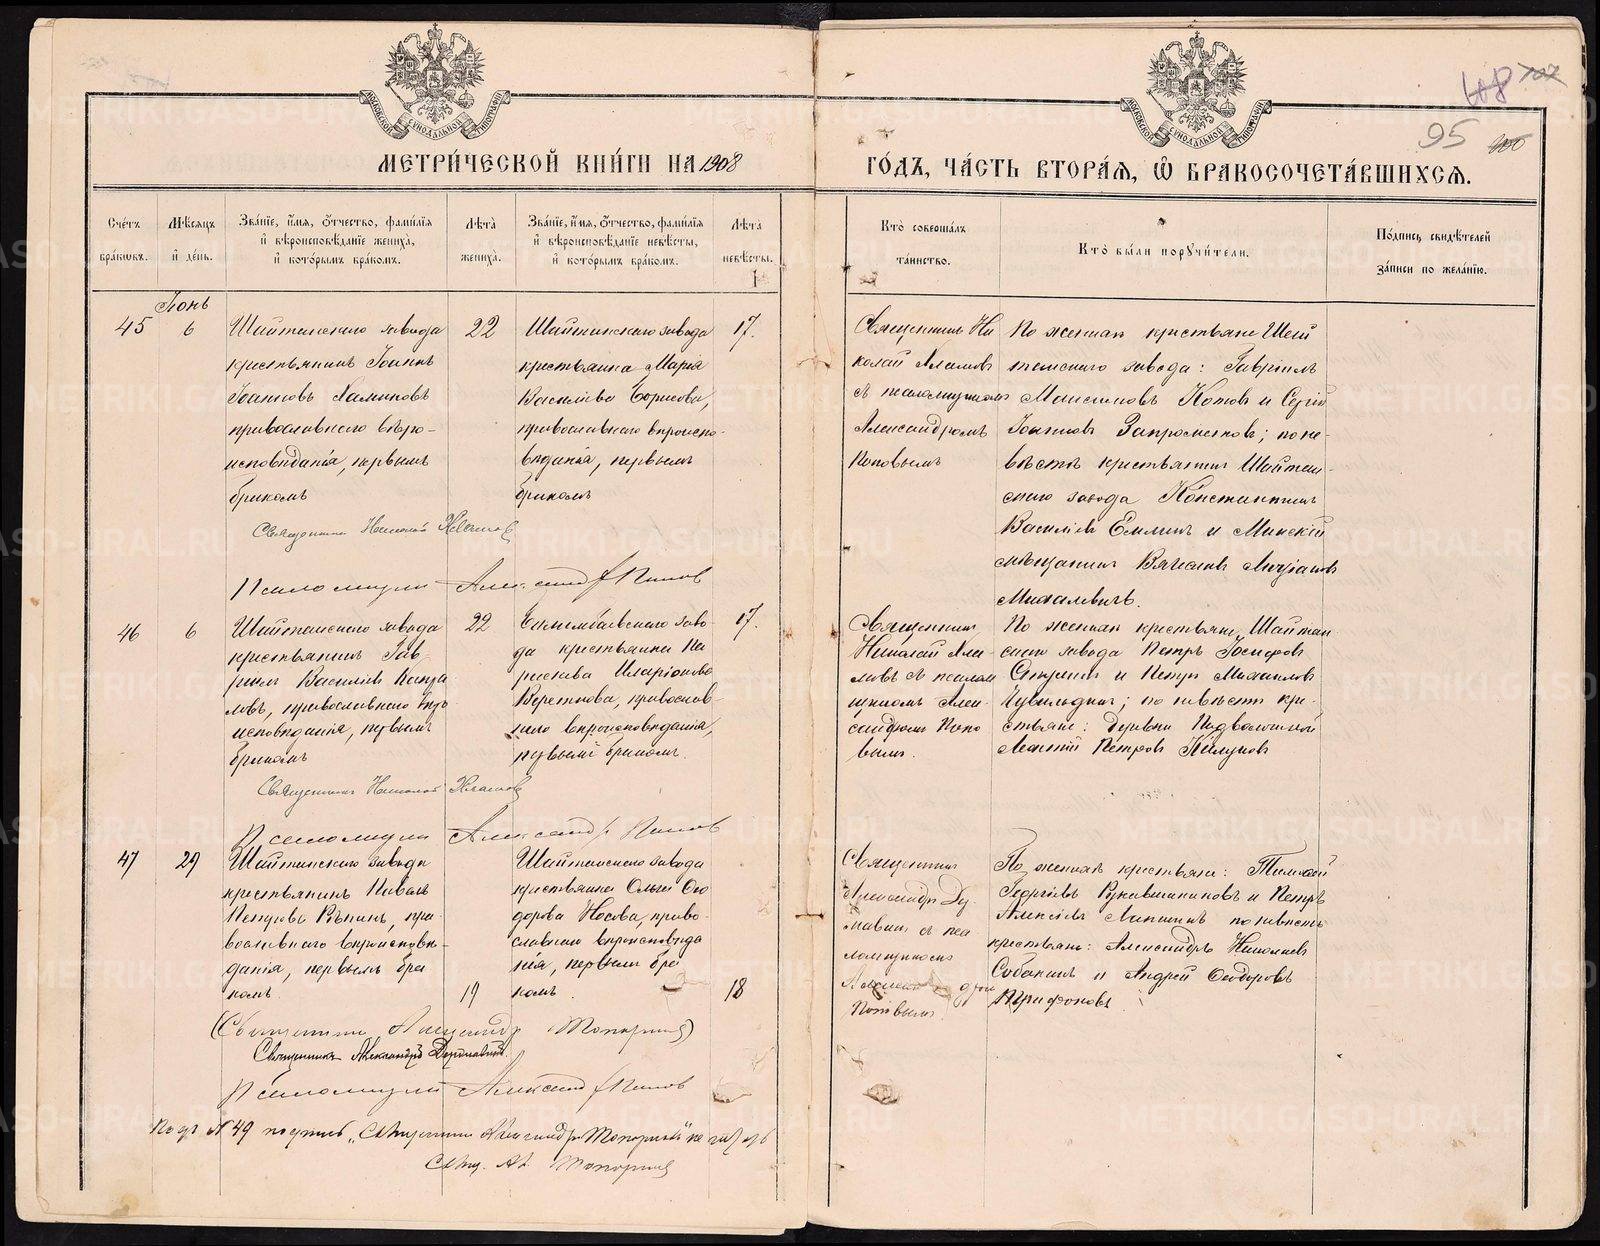 МЕТРИ́ЧЕСКОЙ КНИ́ГИ НА 1908
ГО́ДЪ, ЧА́СТЬ ВТОРА́Ѧ, Ѡ БРАКОСОЧЕТА́ВШИХСѦ.
95
Сче́тъ бра́кѡвъ.
Мѣ́сѧцъ и҆ де́нь.
Зва́нїе, и҆́мѧ, ѻ҆́тчество, фами́лїѧ и҆ вѣроисповѣ́данїе жениха̀, и҆ кото́рымъ бра́комъ.
Лѣ́та жениха̀.
Зва́нїе, и҆́мѧ, ѻ҆́тчество, фами́лїѧ и҆ вѣроисповѣ́данїе невѣ́сты, и҆ кото́рымъ бра́комъ.
Лѣ́та невѣ́сты.
Кто̀ соверша́лъ та́инство.
Кто̀ бы́ли пору́чители.
По́дпись свидѣ́телей за́писи по жела́нїю.
Іюнь
45
6
Шайтанскаго завода
крестьянинъ Іоаннъ
Іоанновъ
православнаго вѣро-
исповѣданія, первымъ
бракомъ
22
Шайтанскаго завода
крестьянка Марія
Васильева Борисова,
православнаго вѣроиспо-
вѣданія, первымъ
бракомъ
17.
Священникъ Ни
колай
съ псаломщикомъ
Александромъ
Поповымъ
По женихѣ крестьяне Шай
танскаго завода: Гавріилъ
Максимовъ Котовъ и Сергій
Іоанновъ; по не-
вѣстѣ крестьянинъ Шайтан-
скаго завода Константинъ
Васильевъ Емлинъ и Минскій
мѣщанинъ
Михалевичъ.
Священникъ Николай
Псаломщикъ Александръ Поповъ
46
6
Шайтанскаго завода
крестьянинъ Гав
ріилъ Васильевъ
православнаго вѣро
исповѣданія, первымъ
бракомъ
22
Билимбаевскаго заво-
да крестьянка Па
раскева Иларіонова
православ-
наго вѣроисповѣданія,
первымъ бракомъ.
17.
Священникъ
Николай
съ псалом
щикомъ Алек-
сандромъ Попо
вымъ.
По женихѣ крестьяне Шайтан
скаго завода Петръ Іосифовъ
и Петръ Михаиловъ
по невѣстѣ кре-
стьяне: деревни Подволошной
Петровъ
Священникъ Николай
Псаломщикъ Александръ Поповъ
47
29
Шайтанскаго завода
крестьянинъ Павелъ
Петровъ Рѣпинъ, пра-
вославнаго вѣроисповѣ-
данія, первымъ бра
комъ
19
Шайтанскаго завода
крестьянка Ольга Ѳео
дорова Носова, право-
славнаго вѣроисповѣда
нія, первымъ бра
комъ.
18
Священникъ
Александръ Дер-
жавинъ съ пса
ломщикомъ
Александромъ
Поповымъ
По женихѣ крестьяне: Тимофей
Георгіевъ Рукавишниковъ и Петръ
Алексѣевъ Лапшинъ по невѣстѣ
крестьяне: Александръ Николаевъ
Собакинъ и Андрей Ѳеодоровъ
(Священникъ Александръ Топорковъ)
Священникъ Александръ Державинъ.
Псаломщикъ Александръ Поповъ
подпись „Священникъ Александръ
METRIKI.GASO-URAL.RU